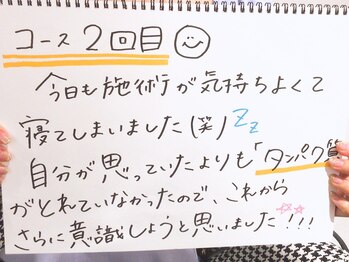 コース2回目
今日も施術が気持ちよくて
寝てしまいました(笑)Zz
自分が思っていたよりも「タンパク質
がとれていなかったので、これから
さらに意識しようと思いました!!!